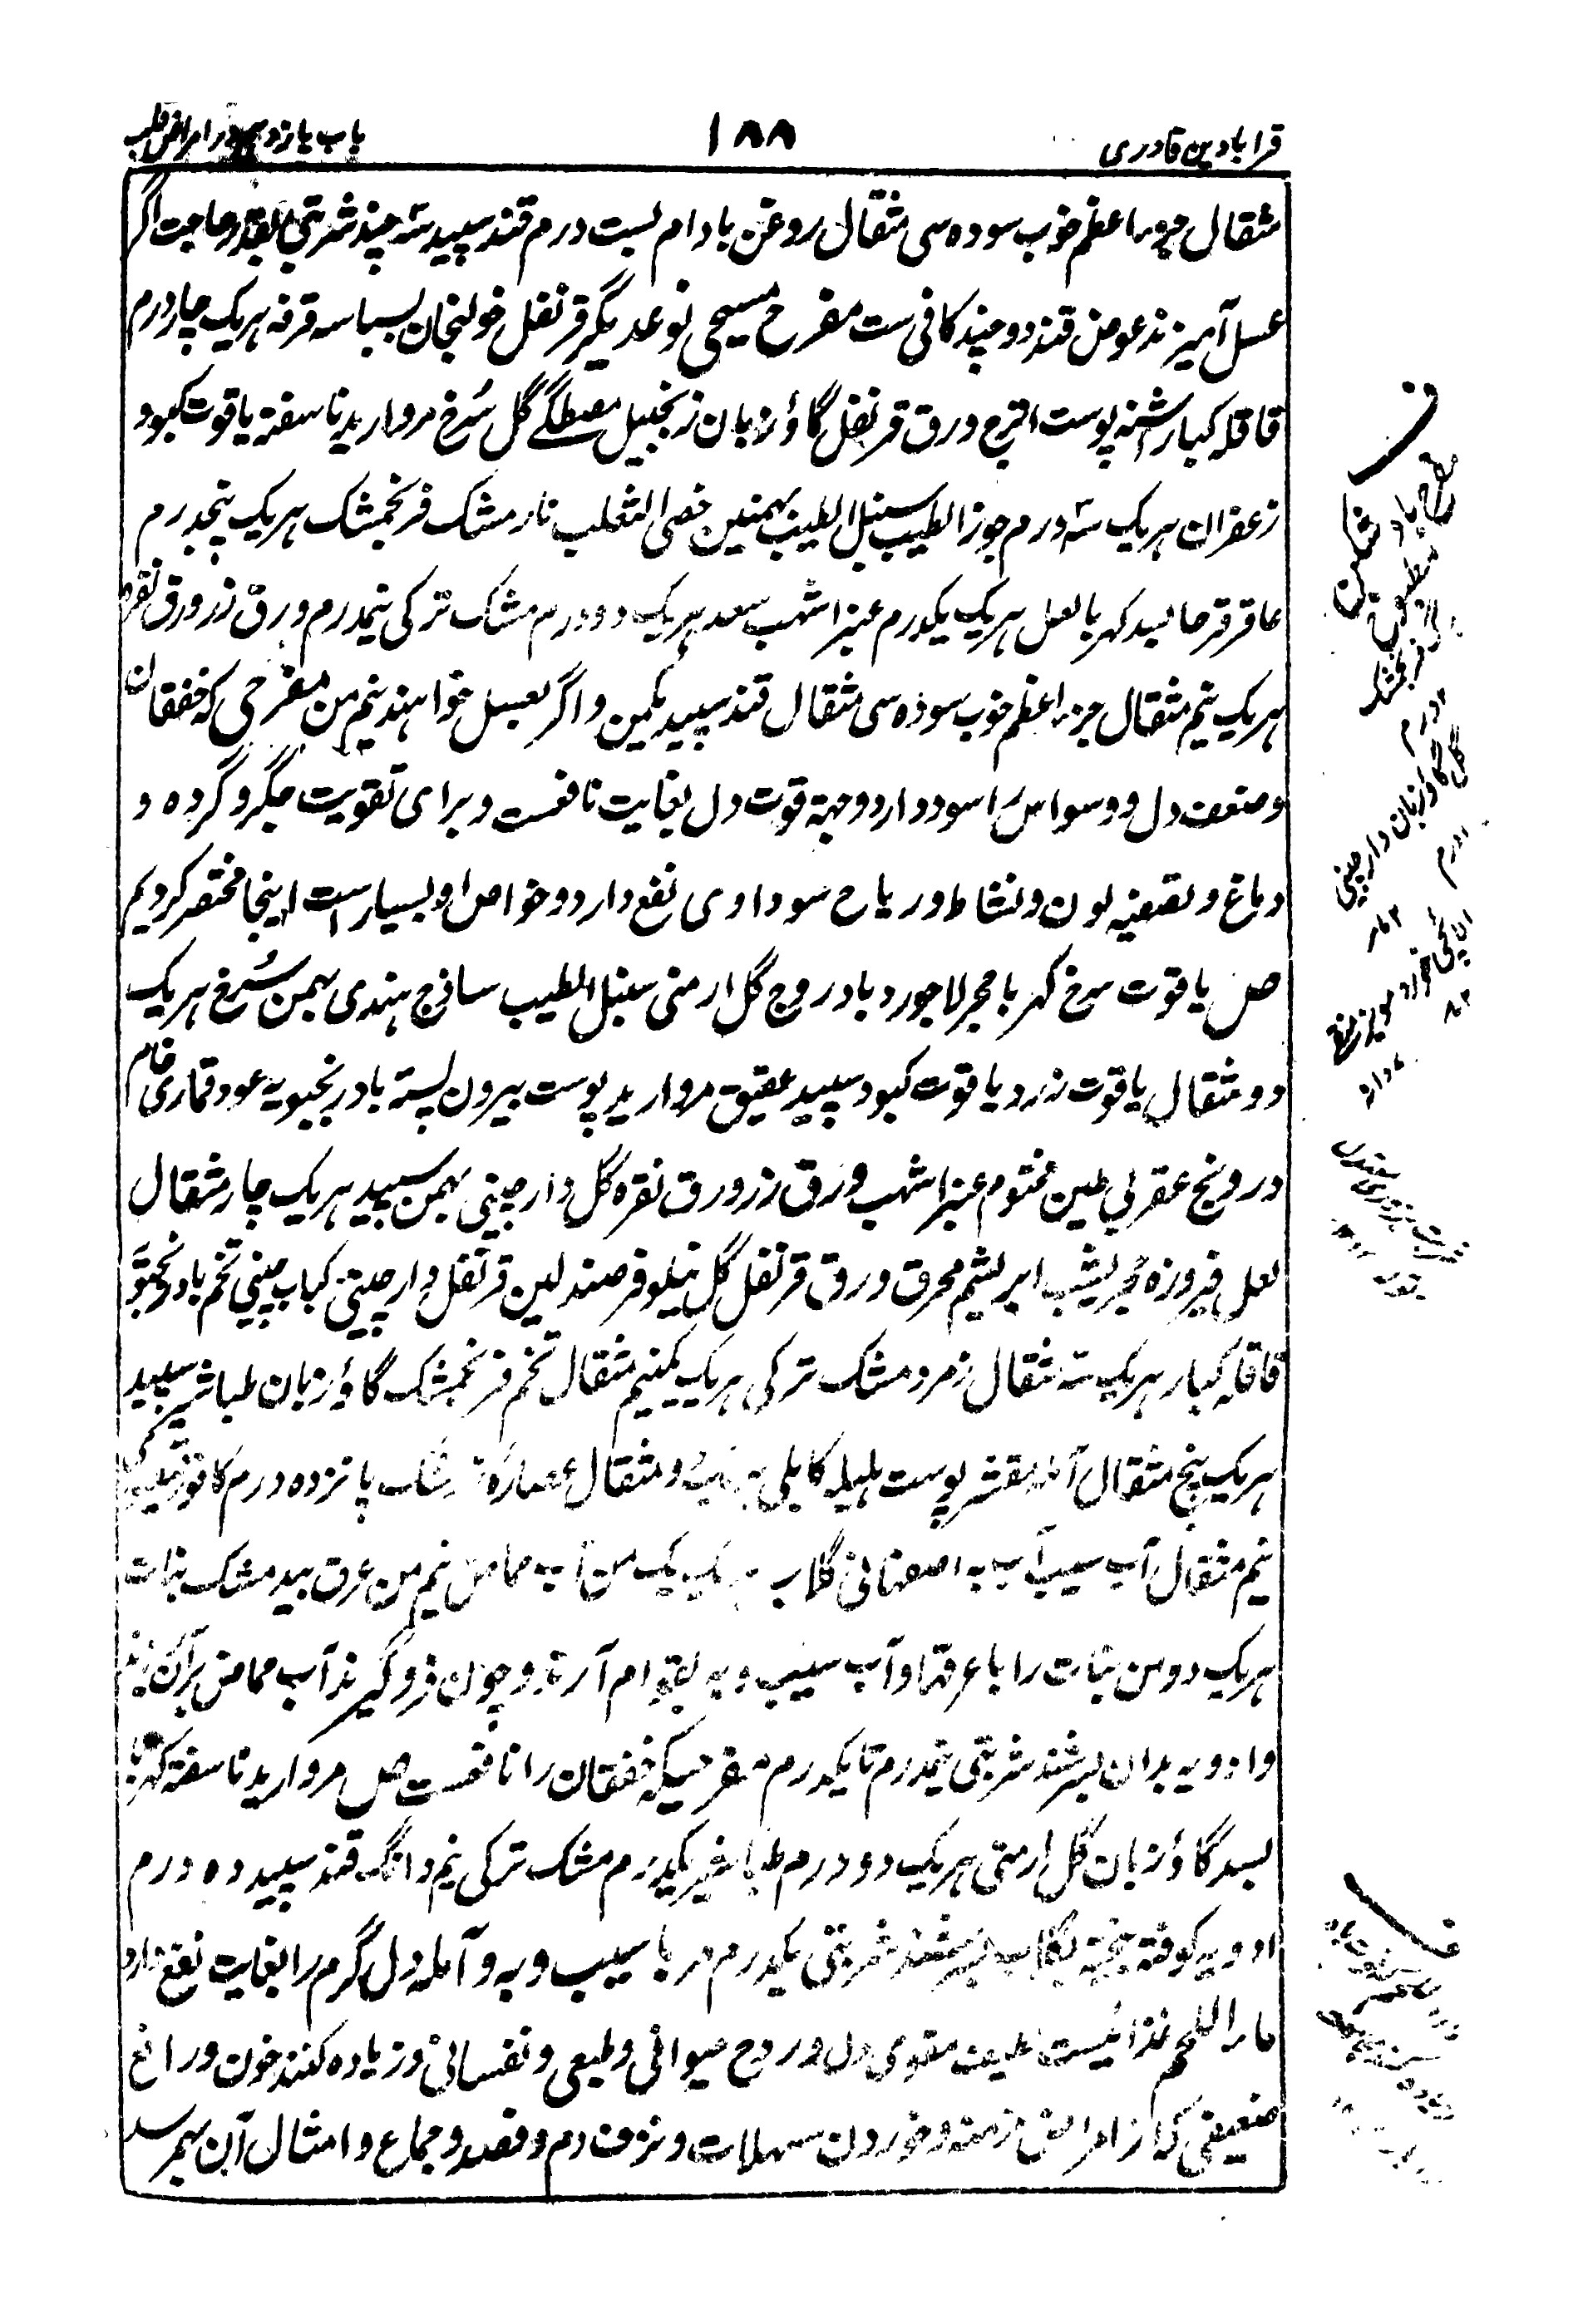 قرابادین قادری
۱۸۸
باب یازدهم در امراض قلب
مثقال جزء اعظم خوب سوده سی مثقال روغن بادام بست درم قند سپید سه چند شربتی بقدر حاجت اگر
عسل آمیزند عوض قند دو چند کافی ست مفرح مسیحی نوعدیگر قرنفل خولنجان بسباسه قرفه هریک چار درم
قاقله کبار اشنه پوست اترج ورق قرنفل گاؤزبان زنجبیل مصطگے گل سُرخ مروارید ناسفته یاقوت کبود
زعفران هریک سه درم جوز الطیب سنبل الطیب بهمنین خصی الثعلب نارمشک فرنجمشک هریک پنجدرم
عاقرقرحا بسد کهربا لعل هریک یکدرم عنبر اشهب سعد هریک دو درم مشک ترکی نیمدرم ورق زر ورق نقره
هریک نیم مثقال جزء اعظم خوب سوده سی مثقال قند سپید یکمن و اگر بعسل خواهند نیم من مفرحی که خفقان
و ضعف دل و وسواس را سود دارد و جهة قوت دل بغایت نافعست و برای تقویت جگر و گرده و
دماغ و تصفیه لون و نشاط و ریاح سوداوی نفع دارد و خواص او بسیار است اینجا مختصر کردیم
صل یاقوت سرخ کهربا حجر لاجورد بادروج گل ارمنی سنبل الطیب ساذج هندی بهمن سُرخ هریک
دو مثقال یاقوت زرد یاقوت کبود سپید عقیق مروارید پوست بیرون پسته بادرنجبویه عود قماری خام
درونج عقربی طین مختوم عنبر اشهب ورق زر ورق نقره گل دارچینی بهمن سپید هریک چار مثقال
لعل فیروزه حجر یشب ابریشم محرق ورق قرنفل گل نیلوفر صندلین قرنفل دارچینی کباب چینی تخم بادرنجبویه
قاقله کبار هریک سه مثقال زمرد مشک ترکی هریک یکنیم مثقال تخم فرنجمشک گاؤزبان طباشیر سپید
هریک پنج مثقال آمله مقشر پوست هلیله کابلی و مثقال عصاره زرشک پانزده درم کافور
نیم مثقال آب سیب آب به اصفهانی گلاب هریک یک من آب حماض نیم من عرق بیدمشک نبات
هریک دو من نبات را با عرقها و آب سیب و به بقوام آرند و چون فرو گیرند آب حماض بر آن
و ادویه بدان بسرشند شربتی نیمدرم تا یکدرم مفرحیکه خفقان را نافعست صل مروارید ناسفته کهربا
بسد گاؤزبان گل ارمنی هریک دو درم طباشیر یکدرم مشک ترکی نیم دانگ قند سپید ده درم
ادویه کوفته بیخته بگلاب بسرشند شربتی یکدرم مربا سیب و به و آمله دل گرم را بغایت نفع دارد
ماء اللحم غذائیست لطیف مقوی دل و روح حیوانی و طبعی و نفسانی و زیاده کنند خون و رافع
ضعیفی که از امراض مزمنه و خوردن مسهلات و نزف دم و فصد و جماع و امثال آن بهم رسد
ف
فرنجمشک
۲ درم
گل گاؤزبان دارچینی
درم
الائچی خورد مویز منقی
ف